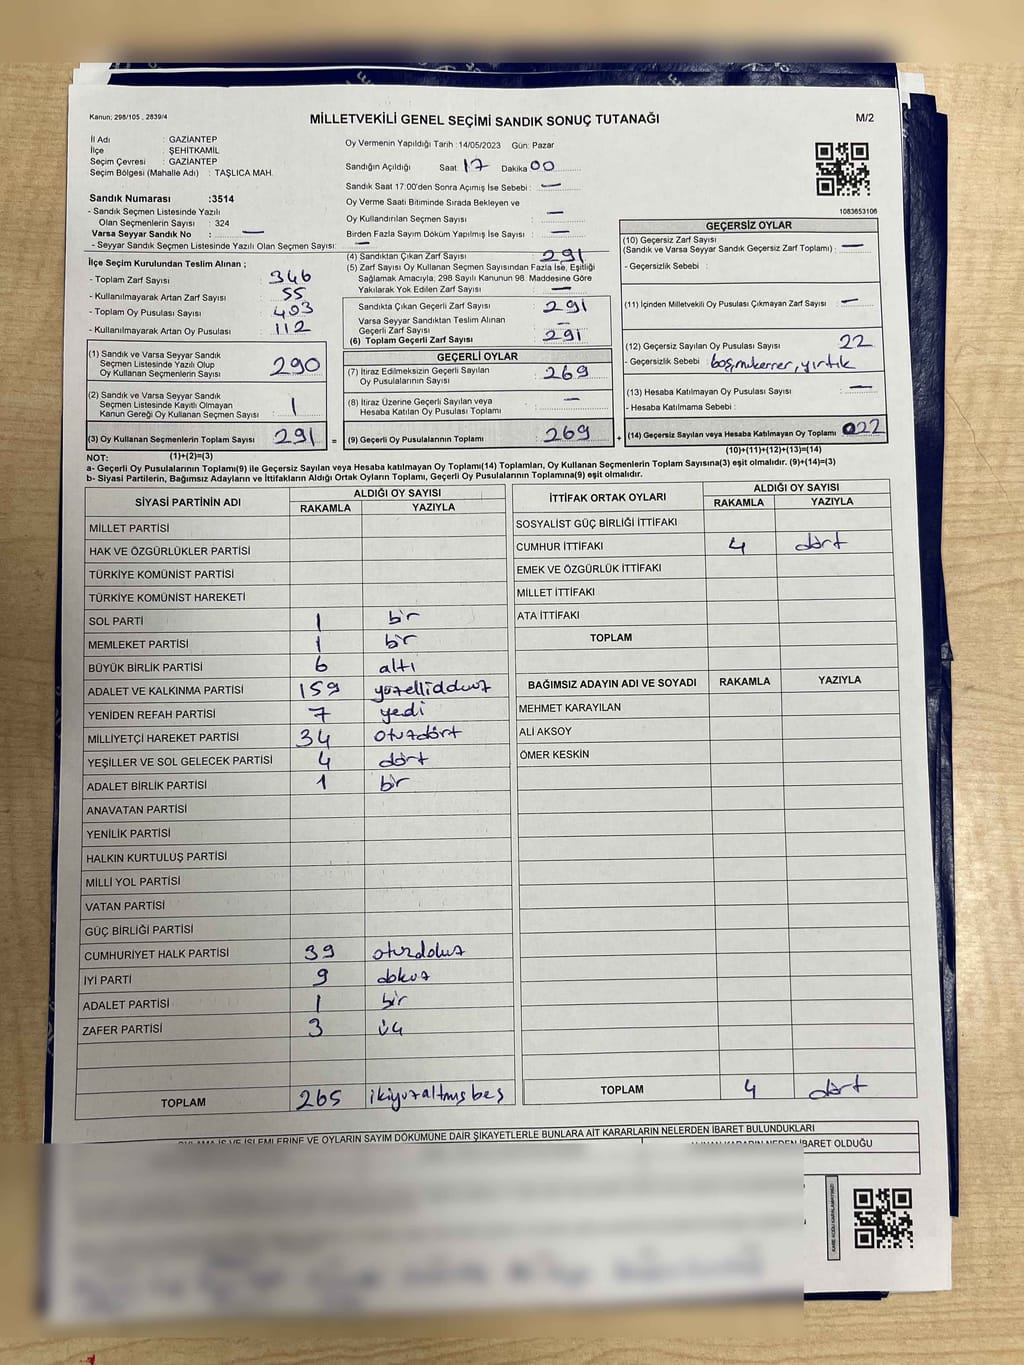 Kanun; 298/105 , 2839/4
MİLLETVEKİLİ GENEL SEÇİMİ SANDIK SONUÇ TUTANAĞI
M/2
İl Adı : GAZİANTEP
İlçe : ŞEHİTKAMİL
Seçim Çevresi : GAZİANTEP
Seçim Bölgesi (Mahalle Adı) : TAŞLICA MAH.
Sandık Numarası :3514
- Sandık Seçmen Listesinde Yazılı
Olan Seçmenlerin Sayısı : 324
Varsa Seyyar Sandık No : —
- Seyyar Sandık Seçmen Listesinde Yazılı Olan Seçmen Sayısı: —
İlçe Seçim Kurulundan Teslim Alınan ;
- Toplam Zarf Sayısı : 346
- Kullanılmayarak Artan Zarf Sayısı : 55
- Toplam Oy Pusulası Sayısı : 403
- Kullanılmayarak Artan Oy Pusulası : 112
(1) Sandık ve Varsa Seyyar Sandık
Seçmen Listesinde Yazılı Olup
Oy Kullanan Seçmenlerin Sayısı : 290
(2) Sandık ve Varsa Seyyar Sandık
Seçmen Listesinde Kayıtlı Olmayan
Kanun Gereği Oy Kullanan Seçmen Sayısı : 1
(3) Oy Kullanan Seçmenlerin Toplam Sayısı : 291 =
(1)+(2)=(3)
Oy Vermenin Yapıldığı Tarih : 14/05/2023 Gün: Pazar
Sandığın Açıldığı Saat 17 Dakika 00
Sandık Saat 17:00'den Sonra Açımış İse Sebebi : —
Oy Verme Saati Bitiminde Sırada Bekleyen ve
Oy Kullandırılan Seçmen Sayısı : —
Birden Fazla Sayım Döküm Yapılmış İse Sayısı : —
(4) Sandıktan Çıkan Zarf Sayısı : 291
(5) Zarf Sayısı Oy Kullanan Seçmen Sayısından Fazla İse, Eşitliği
Sağlamak Amacıyla; 298 Sayılı Kanunun 98. Maddesine Göre
Yakılarak Yok Edilen Zarf Sayısı : —
Sandıkta Çıkan Geçerli Zarf Sayısı : 291
Varsa Seyyar Sandıktan Teslim Alınan
Geçerli Zarf Sayısı : —
(6) Toplam Geçerli Zarf Sayısı : 291
GEÇERLİ OYLAR
(7) İtiraz Edilmeksizin Geçerli Sayılan
Oy Pusulalarının Sayısı : 269
(8) İtiraz Üzerine Geçerli Sayılan veya
Hesaba Katılan Oy Pusulası Toplamı : —
(9) Geçerli Oy Pusulalarının Toplamı : 269 +
1083653106
GEÇERSİZ OYLAR
(10) Geçersiz Zarf Sayısı
(Sandık ve Varsa Seyyar Sandık Geçersiz Zarf Toplamı) : —
- Geçersizlik Sebebi :
(11) İçinden Milletvekili Oy Pusulası Çıkmayan Zarf Sayısı : —
(12) Geçersiz Sayılan Oy Pusulası Sayısı : 22
- Geçersizlik Sebebi : boş, mukerrer, yırtık
(13) Hesaba Katılmayan Oy Pusulası Sayısı : —
- Hesaba Katılmama Sebebi :
(14) Geçersiz Sayılan veya Hesaba Katılmayan Oy Toplamı 022
(10)+(11)+(12)+(13)=(14)
NOT:
a- Geçerli Oy Pusulalarının Toplamı(9) ile Geçersiz Sayılan veya Hesaba katılmayan Oy Toplamı(14) Toplamları, Oy Kullanan Seçmenlerin Toplam Sayısına(3) eşit olmalıdır. (9)+(14)=(3)
b- Siyasi Partilerin, Bağımsız Adayların ve İttifakların Aldığı Ortak Oyların Toplamı, Geçerli Oy Pusulalarının Toplamına(9) eşit olmalıdır.
SİYASİ PARTİNİN ADI ALDIĞI OY SAYISI
RAKAMLA YAZIYLA
MİLLET PARTİSİ
HAK VE ÖZGÜRLÜKLER PARTİSİ
TÜRKİYE KOMÜNİST PARTİSİ
TÜRKİYE KOMÜNİST HAREKETİ
SOL PARTİ 1 bir
MEMLEKET PARTİSİ 1 bir
BÜYÜK BİRLİK PARTİSİ 6 altı
ADALET VE KALKINMA PARTİSİ 159 yüzelliddkuz
YENİDEN REFAH PARTİSİ 7 yedi
MİLLİYETÇİ HAREKET PARTİSİ 34 otuzdört
YEŞİLLER VE SOL GELECEK PARTİSİ 4 dört
ADALET BİRLİK PARTİSİ 1 bir
ANAVATAN PARTİSİ
YENİLİK PARTİSİ
HALKIN KURTULUŞ PARTİSİ
MİLLİ YOL PARTİSİ
VATAN PARTİSİ
GÜÇ BİRLİĞİ PARTİSİ
CUMHURİYET HALK PARTİSİ 39 otuzdokuz
İYİ PARTİ 9 dokuz
ADALET PARTİSİ 1 bir
ZAFER PARTİSİ 3 üç
TOPLAM 265 ikiyuzaltmışbeş
İTTİFAK ORTAK OYLARI ALDIĞI OY SAYISI
RAKAMLA YAZIYLA
SOSYALİST GÜÇ BİRLİĞİ İTTİFAKI
CUMHUR İTTİFAKI 4 dört
EMEK VE ÖZGÜRLÜK İTTİFAKI
MİLLET İTTİFAKI
ATA İTTİFAKI
TOPLAM
BAĞIMSIZ ADAYIN ADI VE SOYADI RAKAMLA YAZIYLA
MEHMET KARAYILAN
ALİ AKSOY
ÖMER KESKİN
TOPLAM 4 dört
OYLAMA İŞ VE İŞLEMLERİNE VE OYLARIN SAYIM DÖKÜMÜNE DAİR ŞİKAYETLERLE BUNLARA AİT KARARLARIN NELERDEN İBARET BULUNDUKLARI
KARARIN NEDEN İBARET OLDUĞU
KARE KODU KARALAMAYINIZ!